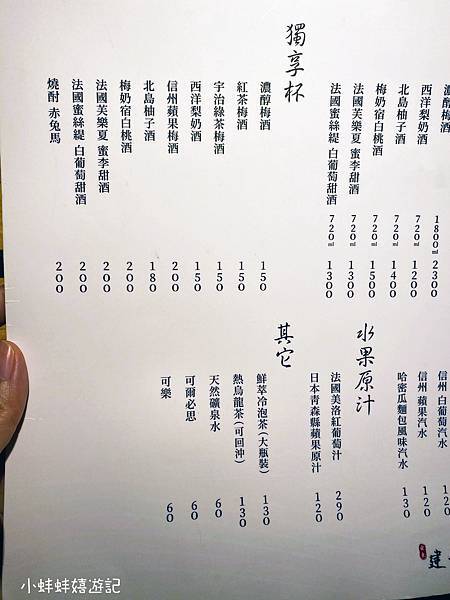 濃醇梅酒 1800ml 2300
西洋梨奶酒 720ml 1200
北島柚子酒 720ml 1400
梅奶宿白桃酒 720ml 1500
法國芙樂夏 蜜李甜酒 720ml 1300
法國蜜絲緹 白葡萄甜酒 720ml 1300
獨享杯
濃醇梅酒 150
紅茶梅酒 150
宇治綠茶梅酒 150
西洋梨奶酒 150
信州蘋果梅酒 200
北島柚子酒 180
梅奶宿白桃酒 200
法國芙樂夏 蜜李甜酒 200
法國蜜絲緹 白葡萄甜酒 200
燒酎 赤兔馬 200
信州 白葡萄汽水
信州 蘋果汽水 120
哈密瓜麵包風味汽水 130
水果原汁
法國美洛紅葡萄汁 290
日本青森縣蘋果原汁 120
其它
鮮萃冷泡茶(大瓶裝) 130
熱烏龍茶(可回沖) 130
天然礦泉水 60
可爾必思 60
可樂 60
建
小蚌蚌嬉遊記